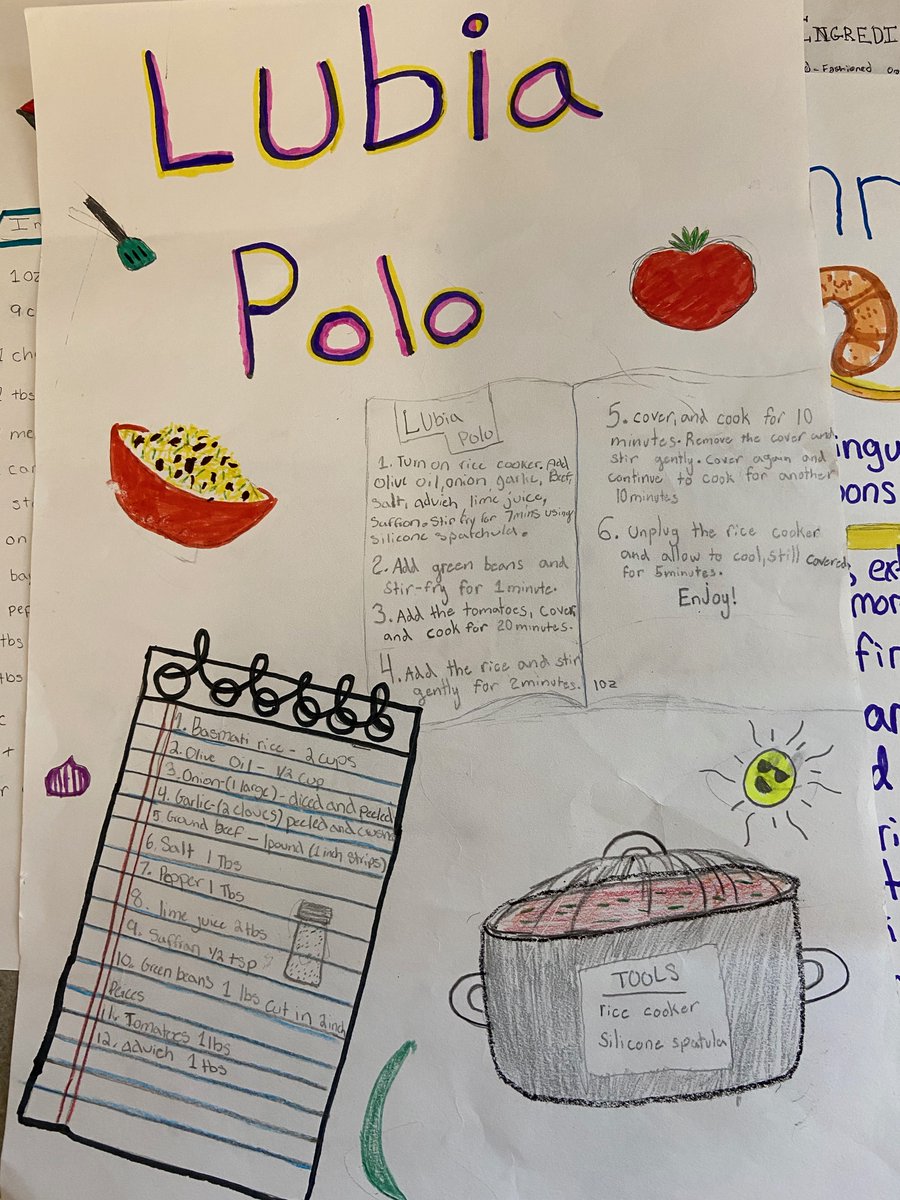 Lubia
Polo
Lubia
Polo
1. Turn on rice cooker. Add
Olive oil, onion garlic, Beef,
Salt, advieh lime juice,
Saffron. Stir fry for 7mins using
Silicone spatchula.
2. Add green beans and
Stir-fry for 1 minute.
3. Add the tomatoes, cover
and cook for 20 minutes.
4. Add the rice and stir
gently for 2 minutes.
5. cover, and cook for 10
minutes. Remove the cover and
stir gently. Cover again and
continue to cook for another
10 minutes
6. Unplug the rice cooker
and allow to cool, still covered,
for 5 minutes.
Enjoy!
102
1. Basmati rice - 2 cups
2. Olive Oil - 1/2 cup
3. Onion - (1 large) - diced and peeled
4. Garlic - (2 cloves) peeled and
5 Ground beef - 1 pound (1 inch strips)
6. Salt 1 Tbs
7. Pepper 1 Tbs
8. lime juice 2 tbs
9. Saffran 1/2 tsp
10. Green beans 1 lbs cut in 2 inch
Peices
11. Tomatoes 1 lbs
12. advieh 1 tbs
TOOLS
rice cooker
Silicone spatula
INGREDI
d-Fashioned
1 oz
9 c
tbs
tbs
tbs